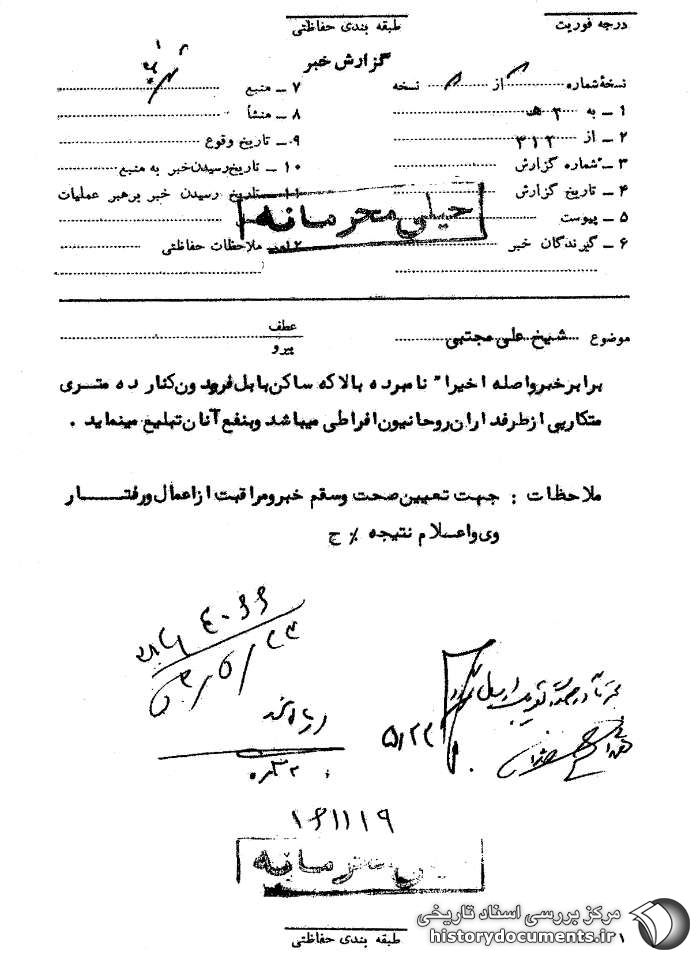 درجه فوریت
طبقه بندی حفاظتی
گزارش خبر
نسخهٔ شماره از نسخه
۱ ـ به ۳ ه‍
۲ ـ از ۳۱۲
۳ ـ شماره گزارش
۴ ـ تاریخ گزارش
۵ ـ پیوست
۶ ـ گیرندگان خبر
۷ ـ منبع
۸ ـ منشأ
۹ ـ تاریخ وقوع
۱۰ ـ تاریخ رسیدن خبر به منبع
۱۱ ـ تاریخ رسیدن خبر برهبر عملیات
۱۲ ـ ملاحظات حفاظتی
خیلی محرمانه
موضوع شیخ علی مجتبی
عطف
پیرو
برابر خبر واصله اخیرا" نامبرده بالا که ساکن بابل فریدون کنار ده متری
متکاریی از طرفداران روحانیون افراطی میباشد و بنفع آنان تبلیغ مینماید .
ملاحظات : جهت تعیین صحت و سقم خبر و مراقبت از اعمال و رفتـــــار
وی و اعلام نتیجه ٪ ج
۵/۲۳
۱۶۱۱۱۹
محرمانه
طبقه بندی حفاظتی
۱
مرکز بررسی اسناد تاریخی
historydocuments.ir